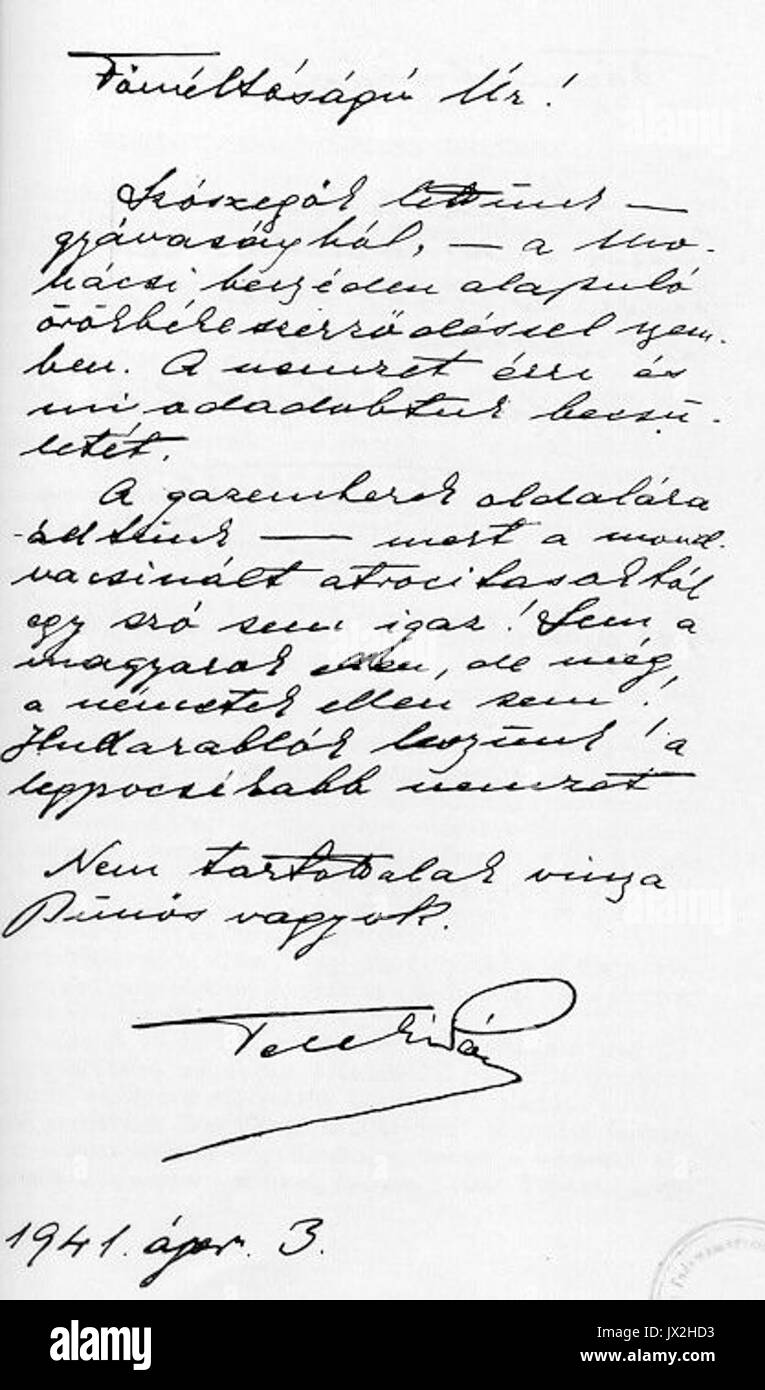 Főméltóságú Úr!
Szószegők lettünk —
gyávaságból, — a mo-
hácsi beszéden alapuló
örökbékeszerződéssel szem-
ben. A nemzet érzi és
mi odadobtuk becsü-
letét.
A gazemberek oldalára
álltunk — mert a mond-
vacsinált atrocitásokból
egy szó sem igaz! Sem a
magyarok ellen, de még
a németek ellen sem!
Hullarablók leszünk! a
legpocsékabb nemzet
Nem tartottalak vissza
Bűnös vagyok.
Teleki Pál
1941. ápr. 3.
alamy
Image ID: JX2HD3
www.alamy.com